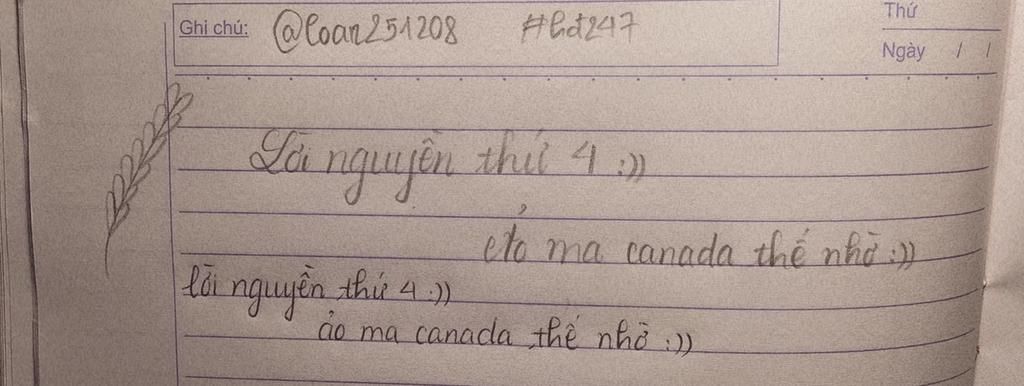 Ghi chú: @loan251208 #hd247
Thứ
Ngày / /
Lời nguyền thứ 4 :))
ảo ma canada thế nhờ :))
lời nguyền thứ 4 :))
ảo ma canada thế nhờ :))